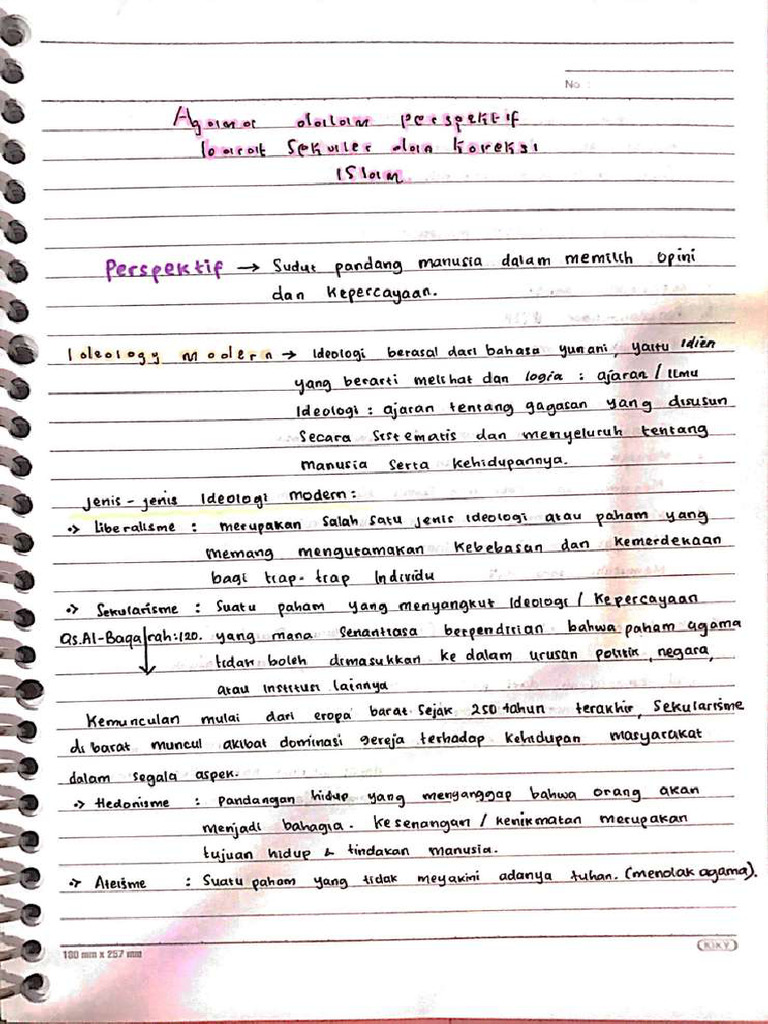 No :
Agama dalam perspektif
barat Sekuler dan koreksi
ISlam
Perspektif → Sudut pandang manusia dalam memilih opini
dan kepercayaan.
Ideology modern → Ideologi berasal dari bahasa yunani, yaitu idien
yang berarti melihat dan logia : ajaran / Ilmu
Ideologi : ajaran tentang gagasan yang disusun
Secara Sistematis dan menyeluruh tentang
manusia serta kehidupannya.
Jenis - jenis Ideologi modern :
•> Liberalisme : merupakan salah satu jenis ideologi atau paham yang
memang mengutamakan kebebasan dan kemerdekaan
bagi tiap-tiap Individu
•> Sekularisme : Suatu paham yang menyangkut Ideologi / kepercayaan
Qs.Al-Baqarah:120. yang mana senantiasa berpendirian bahwa paham agama
tidak boleh dimasukkan ke dalam urusan politik, negara,
atau institusi lainnya
Kemunculan mulai dari eropa barat sejak 250 tahun terakhir, Sekularisme
di barat muncul akibat dominasi gereja terhadap kehidupan masyarakat
dalam segala aspek.
•> Hedonisme : pandangan hidup yang menganggap bahwa orang akan
menjadi bahagia. kesenangan / kenikmatan merupakan
tujuan hidup & tindakan manusia.
•> Ateisme : Suatu paham yang tidak meyakini adanya tuhan. (menolak agama).
180 mm x 257 mm
KIKY